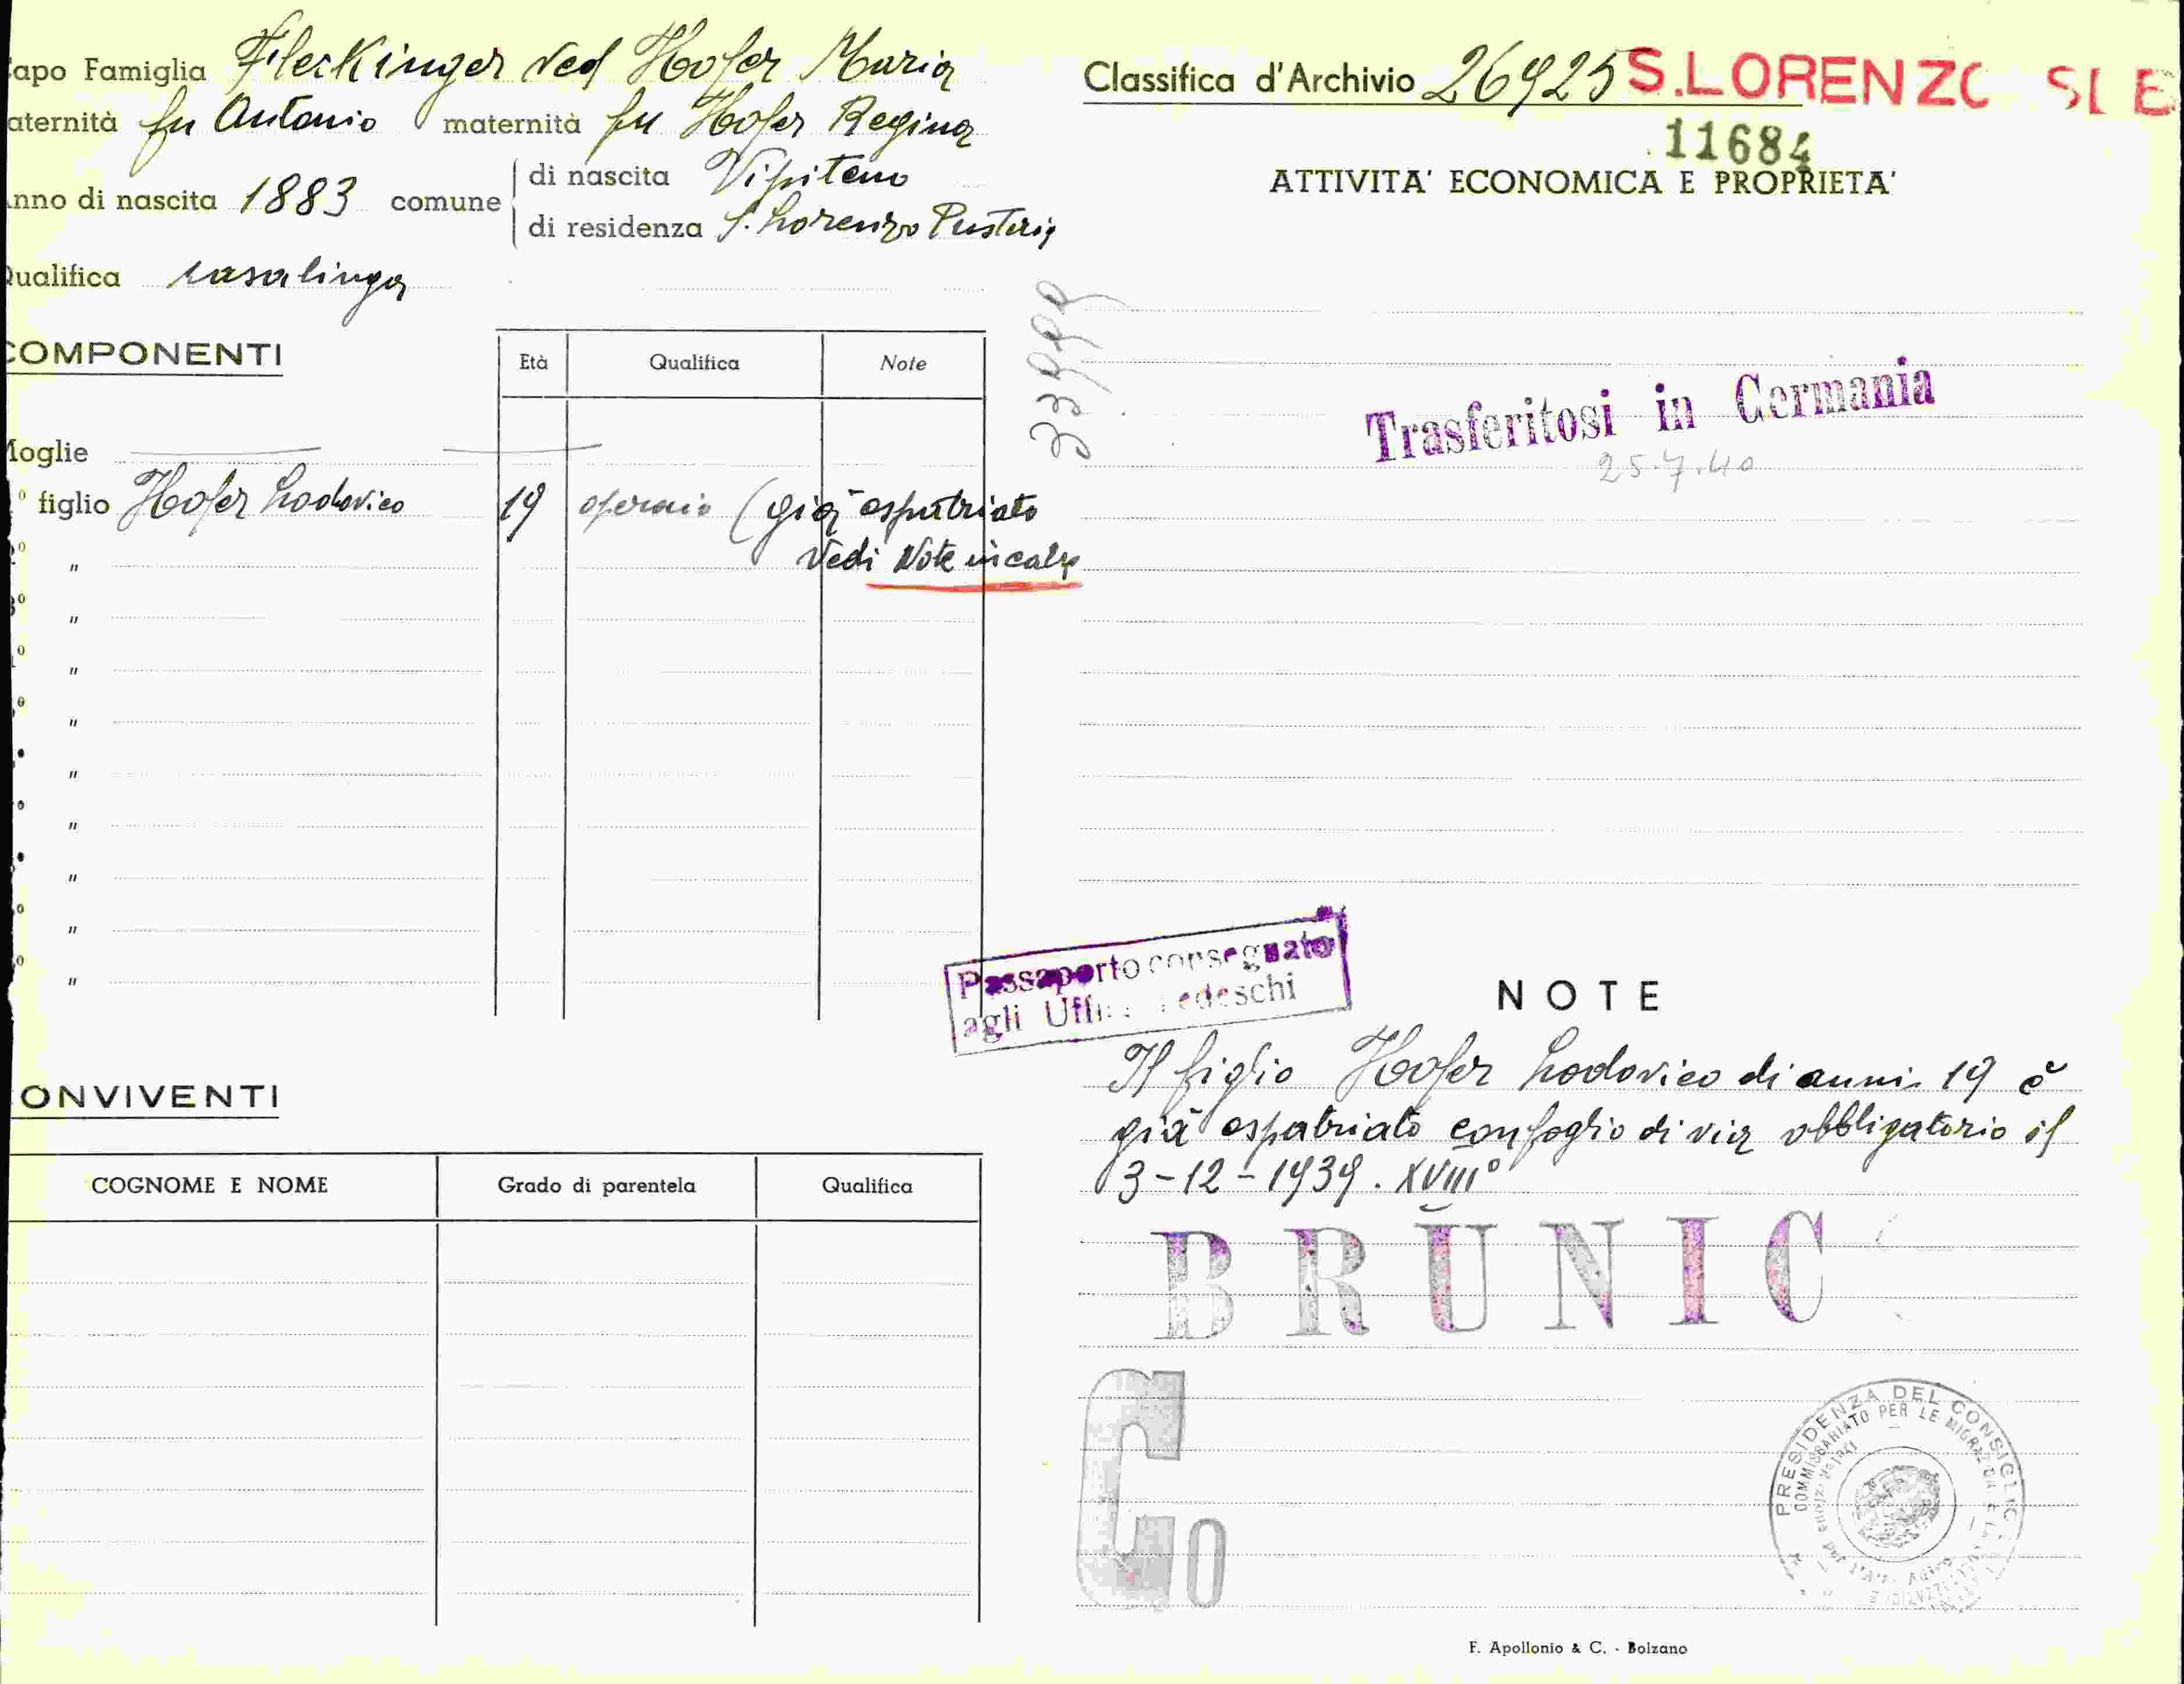 apo Famiglia Fleckinger ved Hofer Maria
aternità fu Antonio maternità fu Hofer Regina
nno di nascita 1883 comune di nascita Vipiteno
di residenza S. Lorenzo Pusteria
Qualifica casalinga
COMPONENTI
Età Qualifica Note
Moglie
º figlio Hofer Lodovico 19 operaio (già espatriato
º " Vedi Note in calce
3º "
º "
º "
"
º "
"
º "
º "
ONVIVENTI
COGNOME E NOME Grado di parentela Qualifica
Classifica d'Archivio 26925 S.LORENZO
11684
ATTIVITA' ECONOMICA E PROPRIETA'
33999
Trasferitosi in Germania
25.7.40
Passaporto consegnato
agli Uffici Tedeschi
NOTE
Il figlio Hofer Lodovico di anni 19 è
già espatriato con foglio di via obbligatorio il
3-12-1939. XVIIIº
BRUNIC
G
O
PRESIDENZA DEL CONSIGLIO
COMMISSARIATO PER LE MIGRAZIONI E LA
F. Apollonio & C. - Bolzano